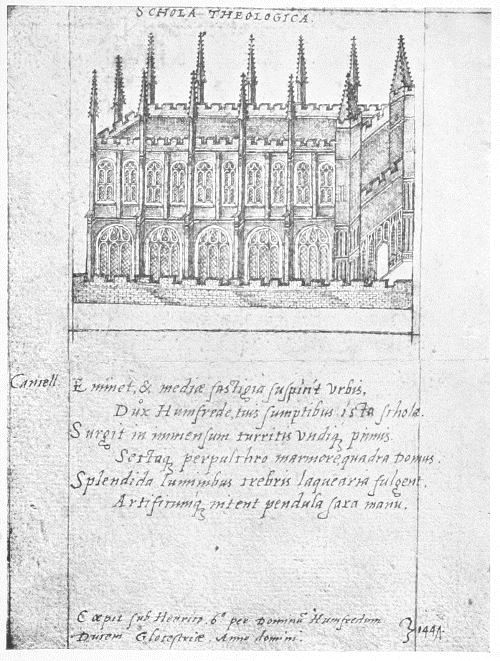 SCHOLA THEOLOGICA.
Cancell. Eminet, & mediæ fastigia suspicit Vrbis,
Dux Humfrede, tuis sumptibus ista schola.
Surgit in immensum turritis Vndiq pinnis
Sectaq perpulchro marmore quadra Domus.
Splendida luminibus crebris laquearia fulgent,
Artificumq nitent pendula saxa manu.
Cœpit sub Henrico. 6º per Dominũ Humfredum
Ducem Glocestriæ. Anno domini. }